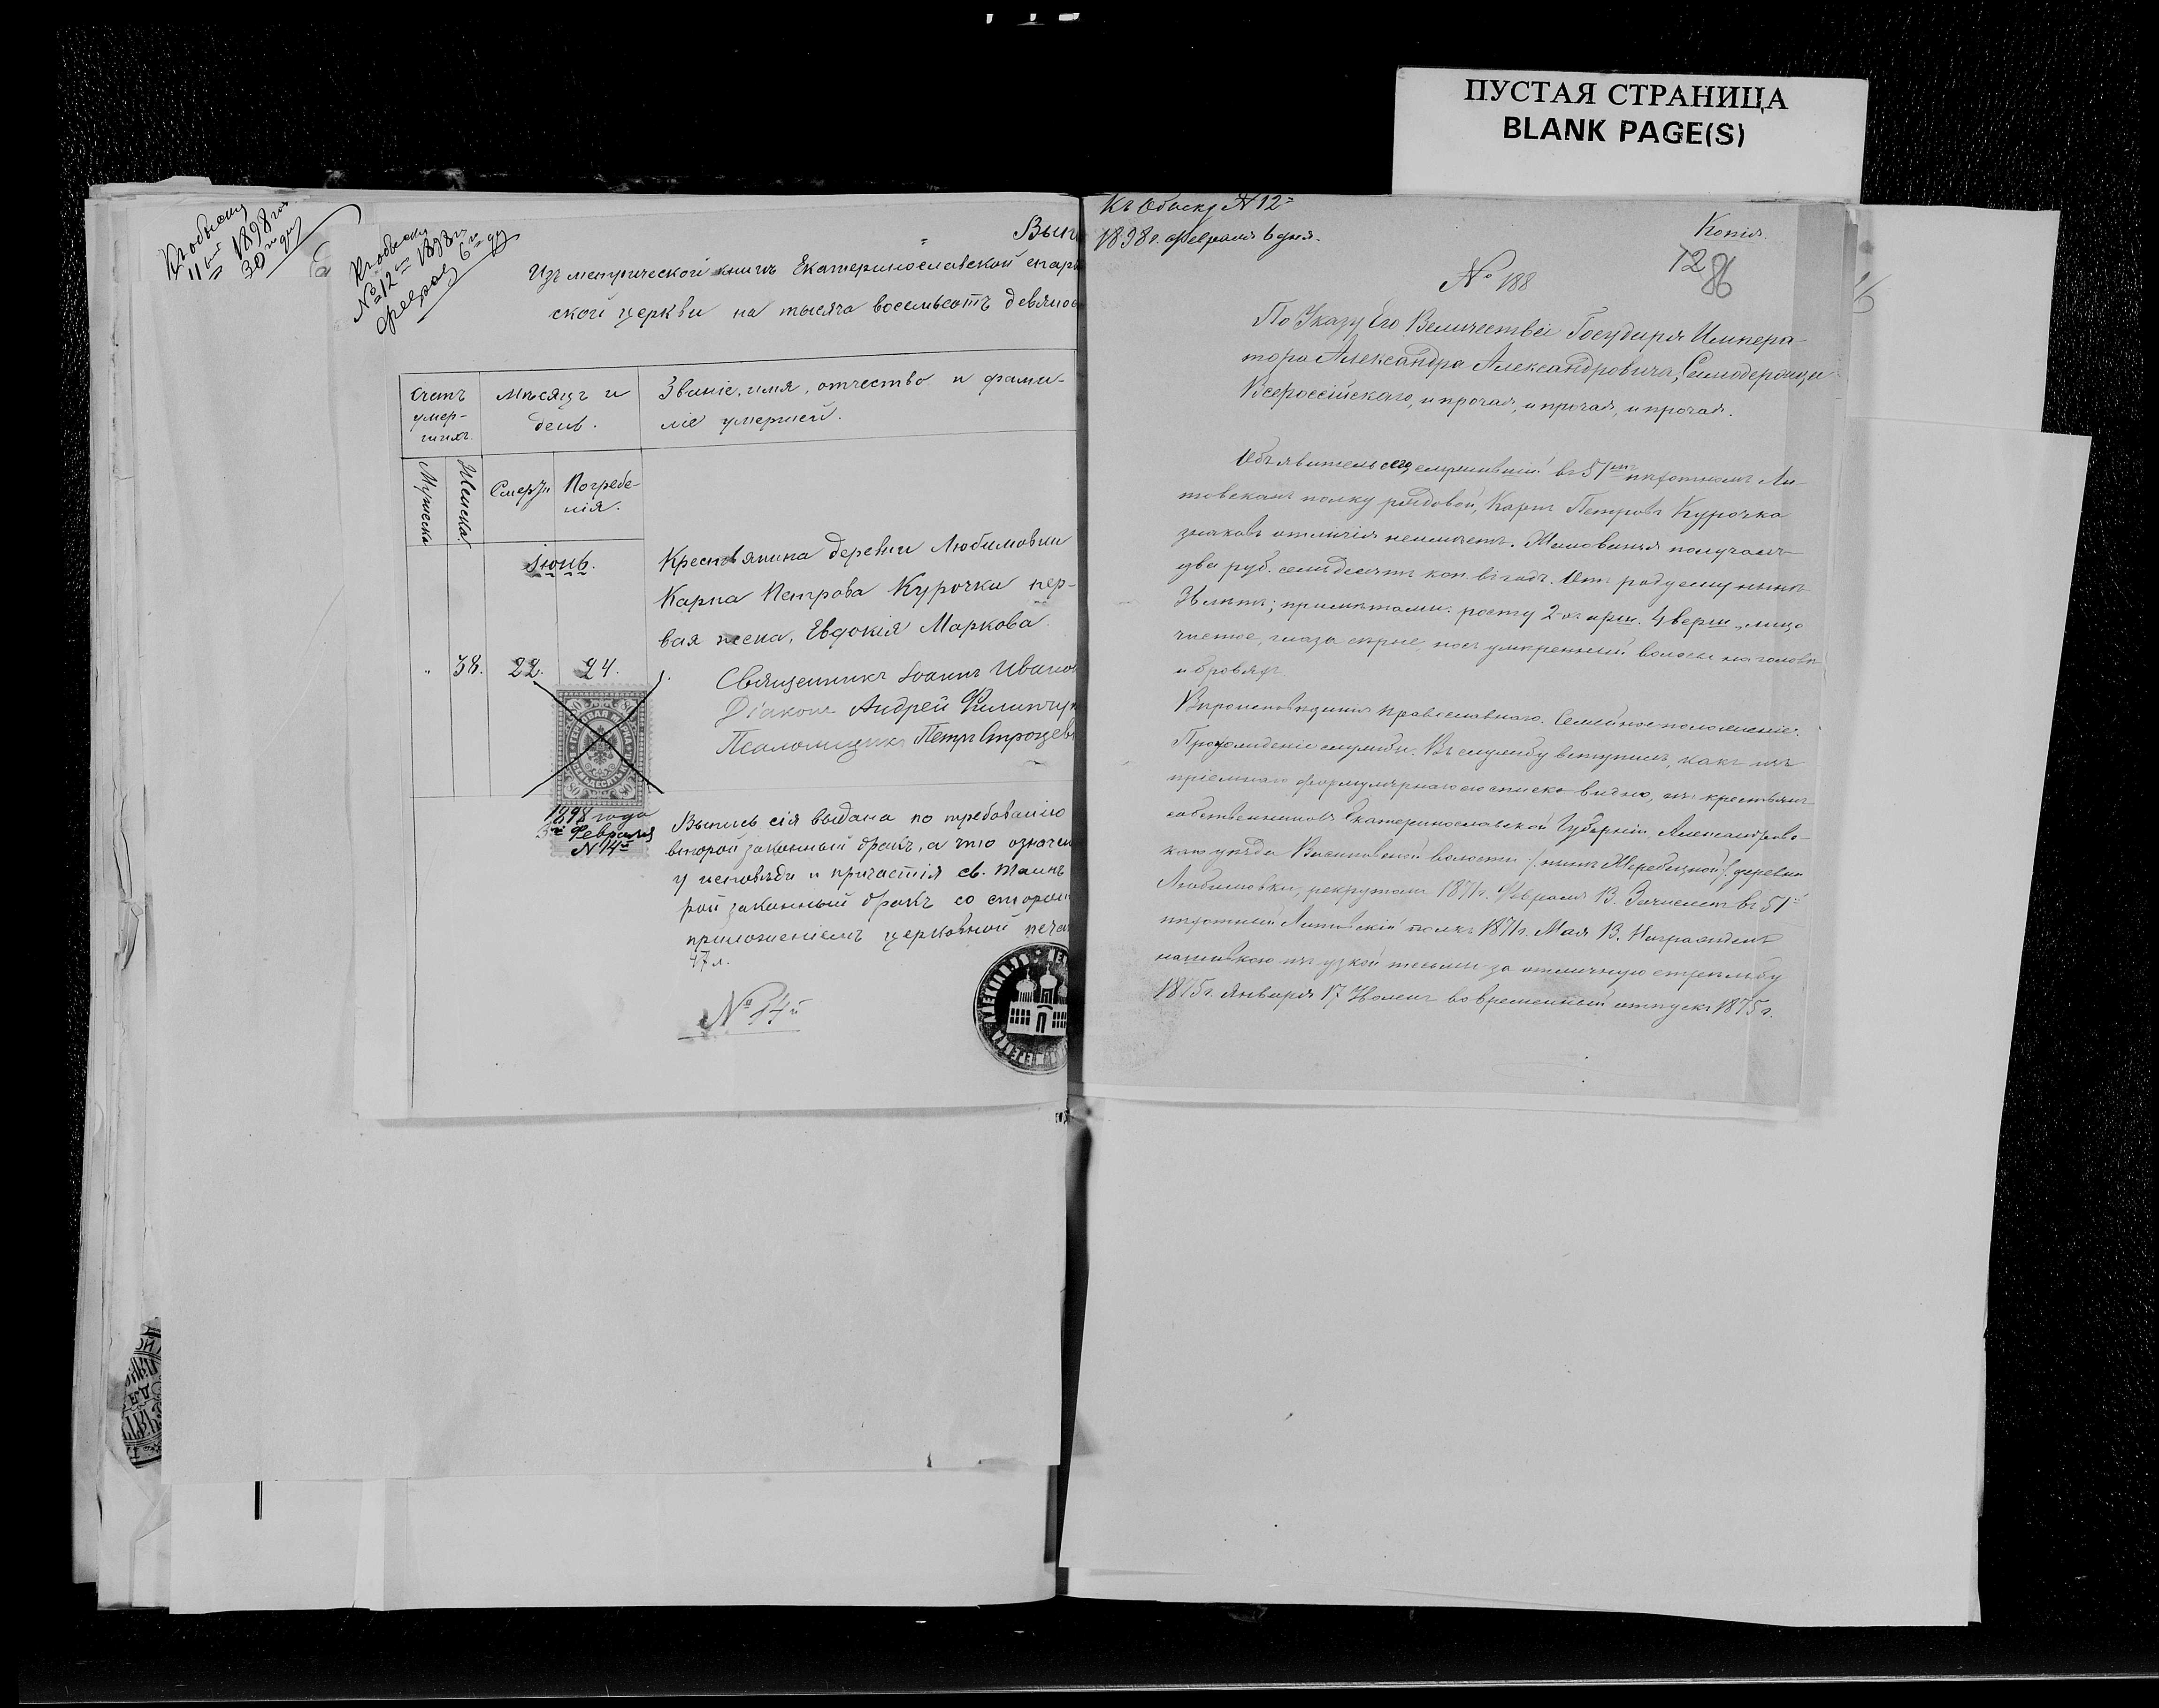 ПУСТАЯ СТРАНИЦА
BLANK PAGE(S)
Къ обыску
11 1898 го
30 дня
Къ обыску
№ 12 1898 г.
февраля 6 дн
Вып
Изъ метрической книги Екатеринославской епар
ской церкви на тысяча восемьсотъ девянос
Счетъ умер-шихъ.
Мѣсяцъ и день.
Званіе, имя, отчество и фами-
ліе умершей.
Мужеска
Женска.
Смерти
Погребе-
нія.
Іюнь.
Крестьянина деревни Любимовки
Карпа Петрова Курочки пер-
вая жена, Евдокія Маркова.
" 38. 22. 24.
Священникъ Іоаннъ Иванов
Діаконъ Андрей Филипчук
Псаломщикъ Петръ
1898 года
3 Февраля
N 14й
Выпись сія выдана по требованію
второй законный бракъ, а что означен
у исповѣди и причастія св. Таинъ
рой законный бракъ со сторон
приложеніемъ церковной печа
№ 14й
Къ Обыску № 12й
1898 г. февраля 6 дня.
Копія.
12 86
№ 188
По Указу Его Величества Государя Импера-
тора Александра Александровича, Самодержца
Всероссійскаго, и прочая, и прочая, и прочая.
Объявитель сего, служившій въ 51мъ пѣхотномъ Ли-
товскомъ полку рядовой, Карпъ Петровъ Курочка
знаковъ отличія неимѣетъ. Жалованья получалъ
два руб. семьдесятъ коп. въ годъ. Отъ роду ему нынѣ
лѣтъ; примѣтами: росту 2хъ арш. 4 верш., лицо
чистое, глаза сѣрые, носъ умѣренный волосы на головѣ
и бровяхъ
Вѣроисповѣданія Православнаго. Семейное положеніе.
Прохожденіе службы. Въ службу вступилъ, какъ изъ
пріемнаго формулярнаго его списка видно, изъ крестьянъ
собственниковъ Екатеринославской Губерніи, Александров-
скаго уѣзда волости /нынѣ Жеребецкой/ деревни
Любимовки, рекрутомъ 1871 г. Февраля 13. Зачисленъ въ 51й
пѣхотный Литовскій полкъ 1871 г. Мая 13. Награжденъ
нашивкою изъ узкой тесьмы за отличную стрѣльбу
1875 г. Января 17 Уволенъ во временный отпускъ 1875 г.